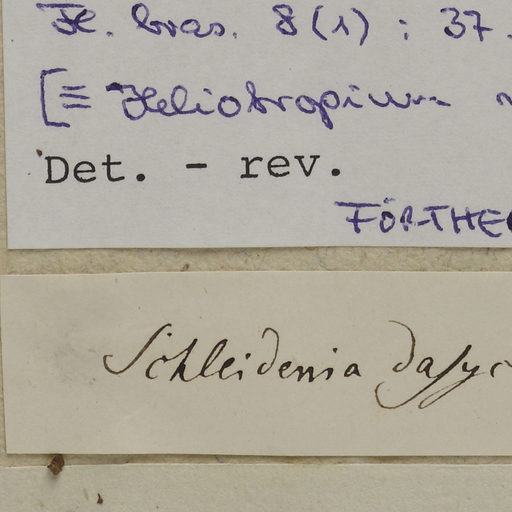 Fl. bras. 8(1) : 37.
[≡ Heliotropium
Det. - rev.
FÖRTHE
Schleidenia dasyc